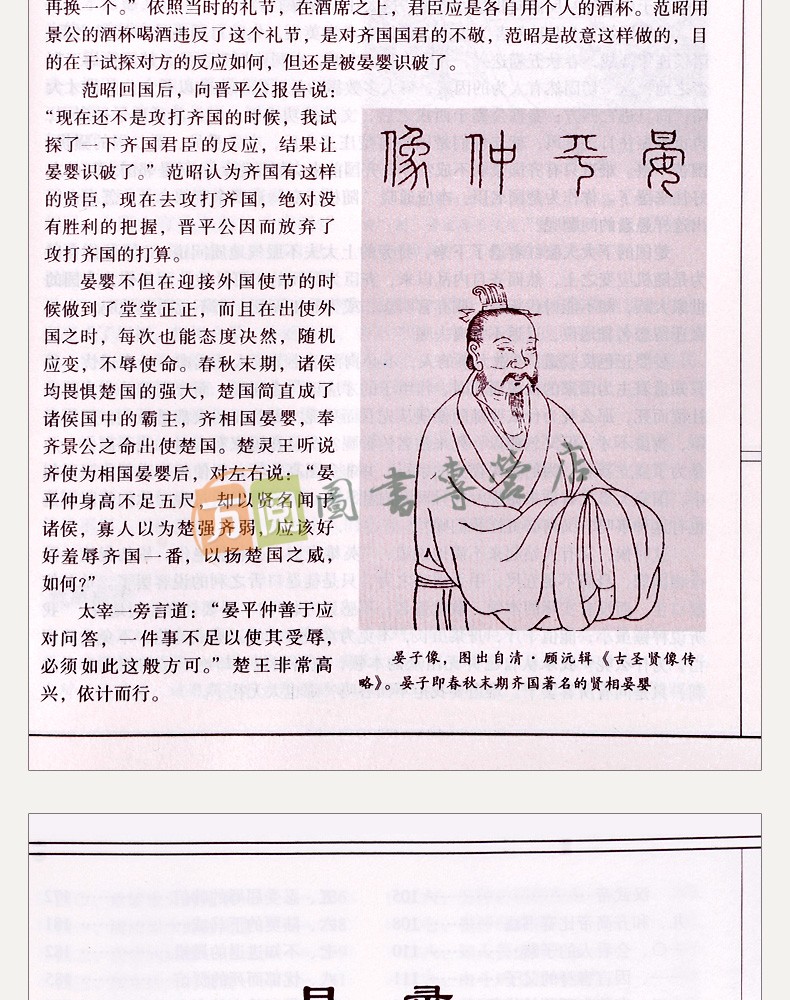 再换一个。”依照当时的礼节，在酒席之上，君臣应是各自用个人的酒杯。范昭用
景公的酒杯喝酒违反了这个礼节，是对齐国国君的不敬，范昭是故意这样做的，目
的在于试探对方的反应如何，但还是被晏婴识破了。
范昭回国后，向晋平公报告说：
“现在还不是攻打齐国的时候，我试
探了一下齐国君臣的反应，结果让
晏婴识破了。”范昭认为齐国有这样
的贤臣，现在去攻打齐国，绝对没
有胜利的把握，晋平公因而放弃了
攻打齐国的打算。
晏婴不但在迎接外国使节的时
候做到了堂堂正正，而且在出使外
国之时，每次也能态度决然，随机
应变，不辱使命。春秋末期，诸侯
均畏惧楚国的强大，楚国简直成了
诸侯国中的霸主，齐相国晏婴，奉
齐景公之命出使楚国。楚灵王听说
齐使为相国晏婴后，对左右说：“晏
平仲身高不足五尺，却以贤名闻于
诸侯，寡人以为楚强齐弱，应该好
好羞辱齐国一番，以扬楚国之威，
如何?”
太宰一旁言道：“晏平仲善于应
对问答，一件事不足以使其受辱，
必须如此这般方可。”楚王非常高
兴，依计而行。
像仲平晏
晏子像，图出自清·顾沅辑《古圣贤像传
略》。晏子即春秋末期齐国著名的贤相晏婴
阅圖書專營店
目录